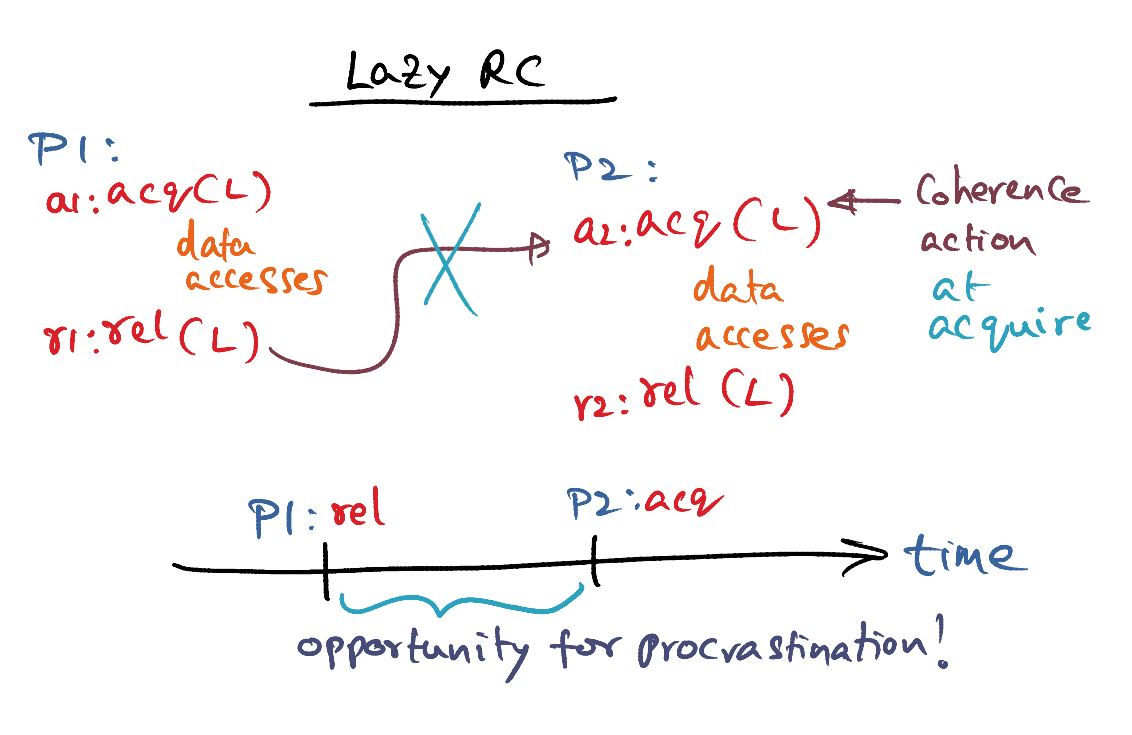 Lazy RC
P1:
a1: acq(L)
data
accesses
r1: rel(L)
P2:
a2: acq(L)
data
accesses
r2: rel(L)
Coherence
action
at
acquire
P1: rel
P2: acq
time
opportunity for procrastination!